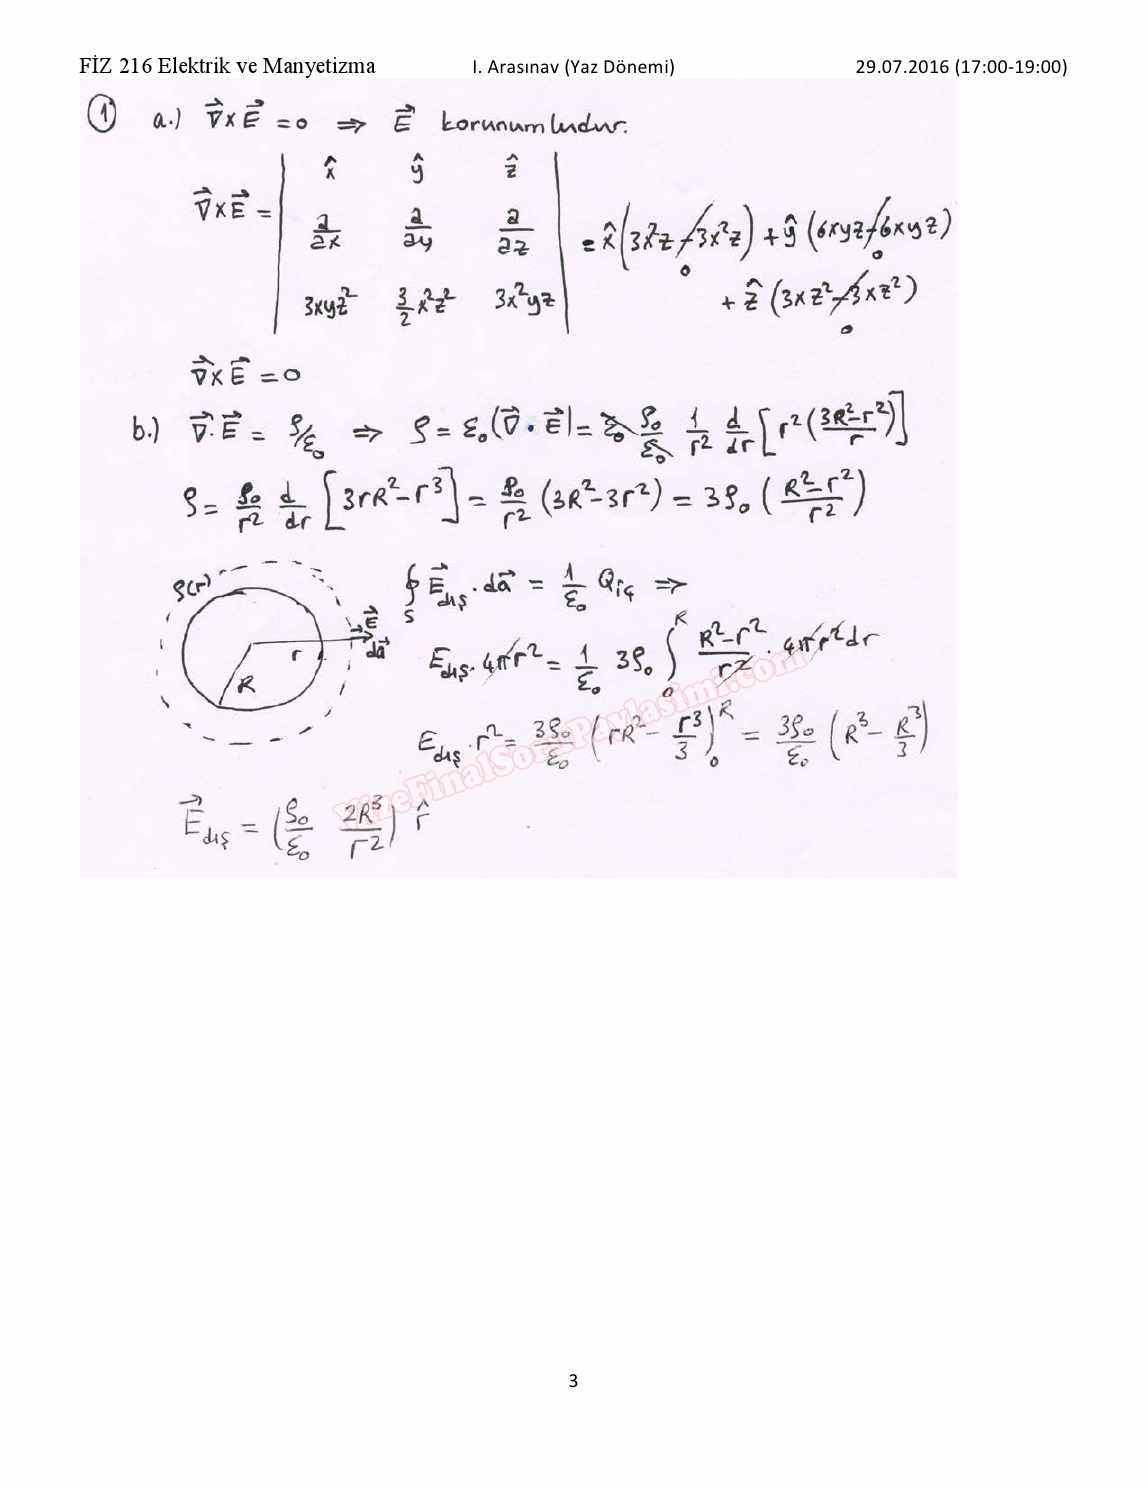 FİZ 216 Elektrik ve Manyetizma I. Arasınav (Yaz Dönemi) 29.07.2016 (17:00-19:00)
① a.) ∇⃗×E⃗ = 0 ⇒ E⃗ korunumludur.
∇⃗×E⃗ = | x̂ ŷ ẑ |
| ∂/∂x ∂/∂y ∂/∂z | = x̂(3x²z - 3x²z) + ŷ(6xyz - 6xyz)
0 0
| 3xyz² 3/2 x²z² 3x²yz | + ẑ(3xz² - 3xz²)
0
∇⃗×E⃗ = 0
b.) ∇⃗·E⃗ = ρ/ε₀ ⇒ ρ = ε₀(∇⃗·E⃗) = ε₀ ρ₀/ε₀ 1/r² d/dr [r²((3R²-r²)/r)]
ρ = ρ₀/r² d/dr [3rR²-r³] = ρ₀/r² (3R²-3r²) = 3ρ₀ ((R²-r²)/r²)
ρ(r)
E⃗
da⃗
r
R
∮S E⃗dış·da⃗ = 1/ε₀ Qiç ⇒
Edış·4πr² = 1/ε₀ 3ρ₀ ∫₀ᴿ (R²-r²)/r² · 4πr²dr
Edış·r² = 3ρ₀/ε₀ (rR² - r³/3)₀ᴿ = 3ρ₀/ε₀ (R³ - R³/3)
E⃗dış = (ρ₀/ε₀ 2R³/r²) r̂
VizeFinalSoruPaylasimi.com
3